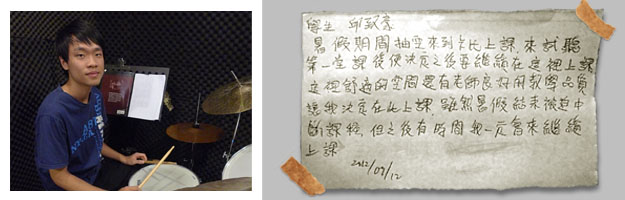 學生 邱
暑假期間抽空來到卡比上課，來試聽
第一堂課後便決定之後要繼續在這裡上課
這裡舒適的空間還有老師良好用教學品質
讓我決定在此上課 雖然暑假結束被迫中
斷課程，但之後有時間我一定會來繼續
上課
2012/09/12